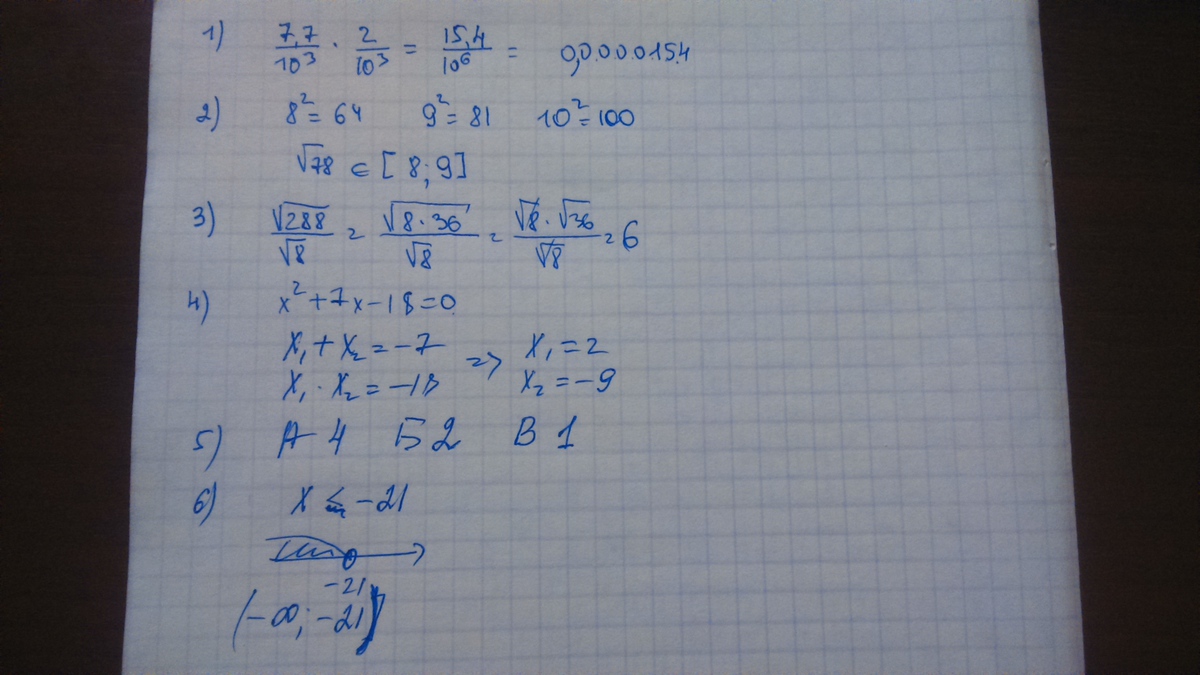 1) 7,7/10³ · 2/10³ = 15,4/10⁶ = 0,0.00.0154
2) 8² = 64 9² = 81 10² = 100
√78 ∈ [8; 9]
3) √288/√8 = √8·36/√8 = √8·√36/√8 = 6
4) x² + 7x – 18 = 0
x₁ + x₂ = –7 => x₁ = 2
x₁ · x₂ = –18 x₂ = –9
5) А 4 Б 2 В 1
6) x ≤ –21
–21
(–∞; –21]